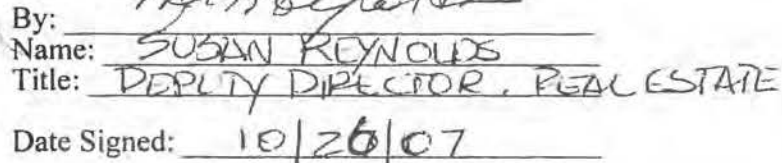 By:
Name: SUSAN REYNOLDS
Title: DEPUTY DIRECTOR, REAL ESTATE
Date Signed: 10/26/07